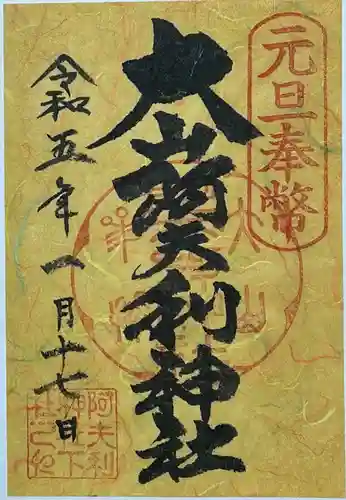 元旦奉幣
大山阿夫利神社
令和五年一月十七日
大山
阿夫利
神下
社之印